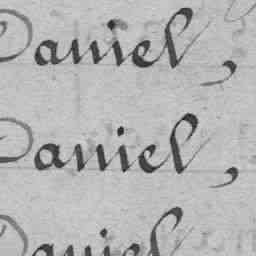 Daniel,
Daniel,
Daniel